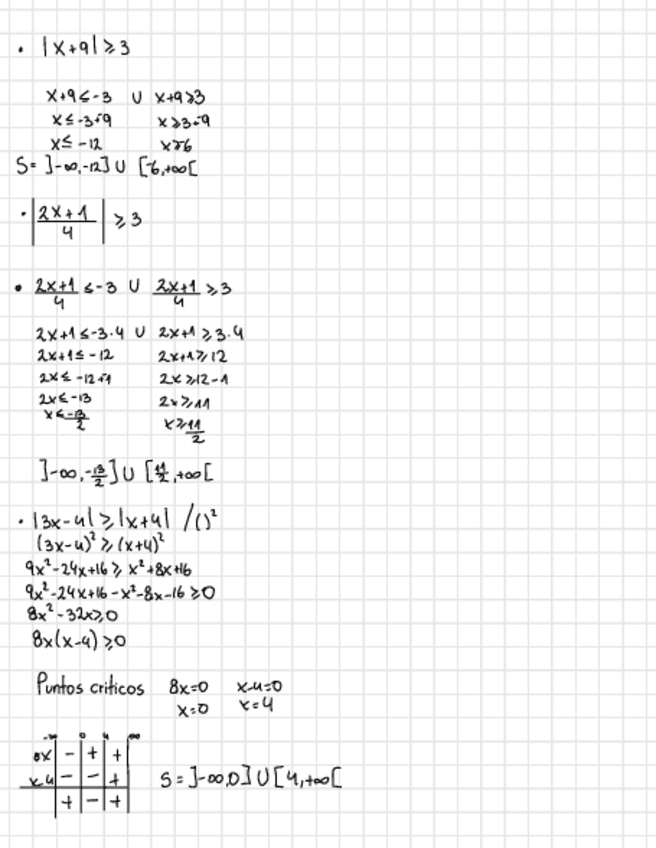 • |x+9| ≥ 3
x+9 ≤ -3 U x+9 ≥ 3
x ≤ -3-9 x ≥ 3-9
x ≤ -12 x ≥ -6
S= ]-∞,-12] U [-6,+∞[
• |(2x+1)/4| ≥ 3
• (2x+1)/4 ≤ -3 U (2x+1)/4 ≥ 3
2x+1 ≤ -3·4 U 2x+1 ≥ 3·4
2x+1 ≤ -12 2x+1 ≥ 12
2x ≤ -12-1 2x ≥ 12-1
2x ≤ -13 2x ≥ 11
x ≤ -13/2 x ≥ 11/2
]-∞,-13/2] U [11/2,+∞[
• |3x-4| ≥ |x+4| /()²
(3x-4)² ≥ (x+4)²
9x²-24x+16 ≥ x²+8x+16
9x²-24x+16-x²-8x-16 ≥ 0
8x²-32x ≥ 0
8x(x-4) ≥ 0
Puntos criticos 8x=0 x-4=0
x=0 x=4
-∞ 0 4 ∞
8x - + +
x-4 - - +
+ - +
S=]-∞,0] U [4,+∞[